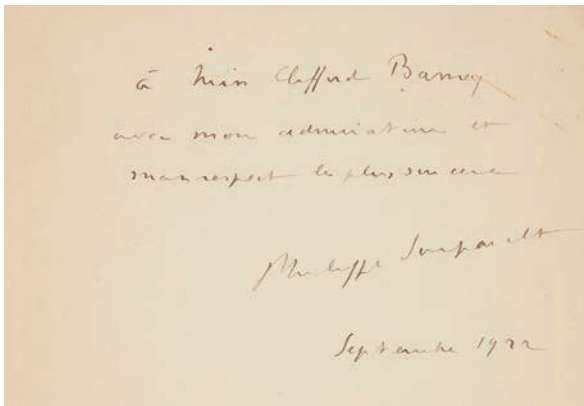 à Miss Clifford Barney
avec mon admiration et
mon respect le plus sincère
Philippe Soupault
Septembre 1922